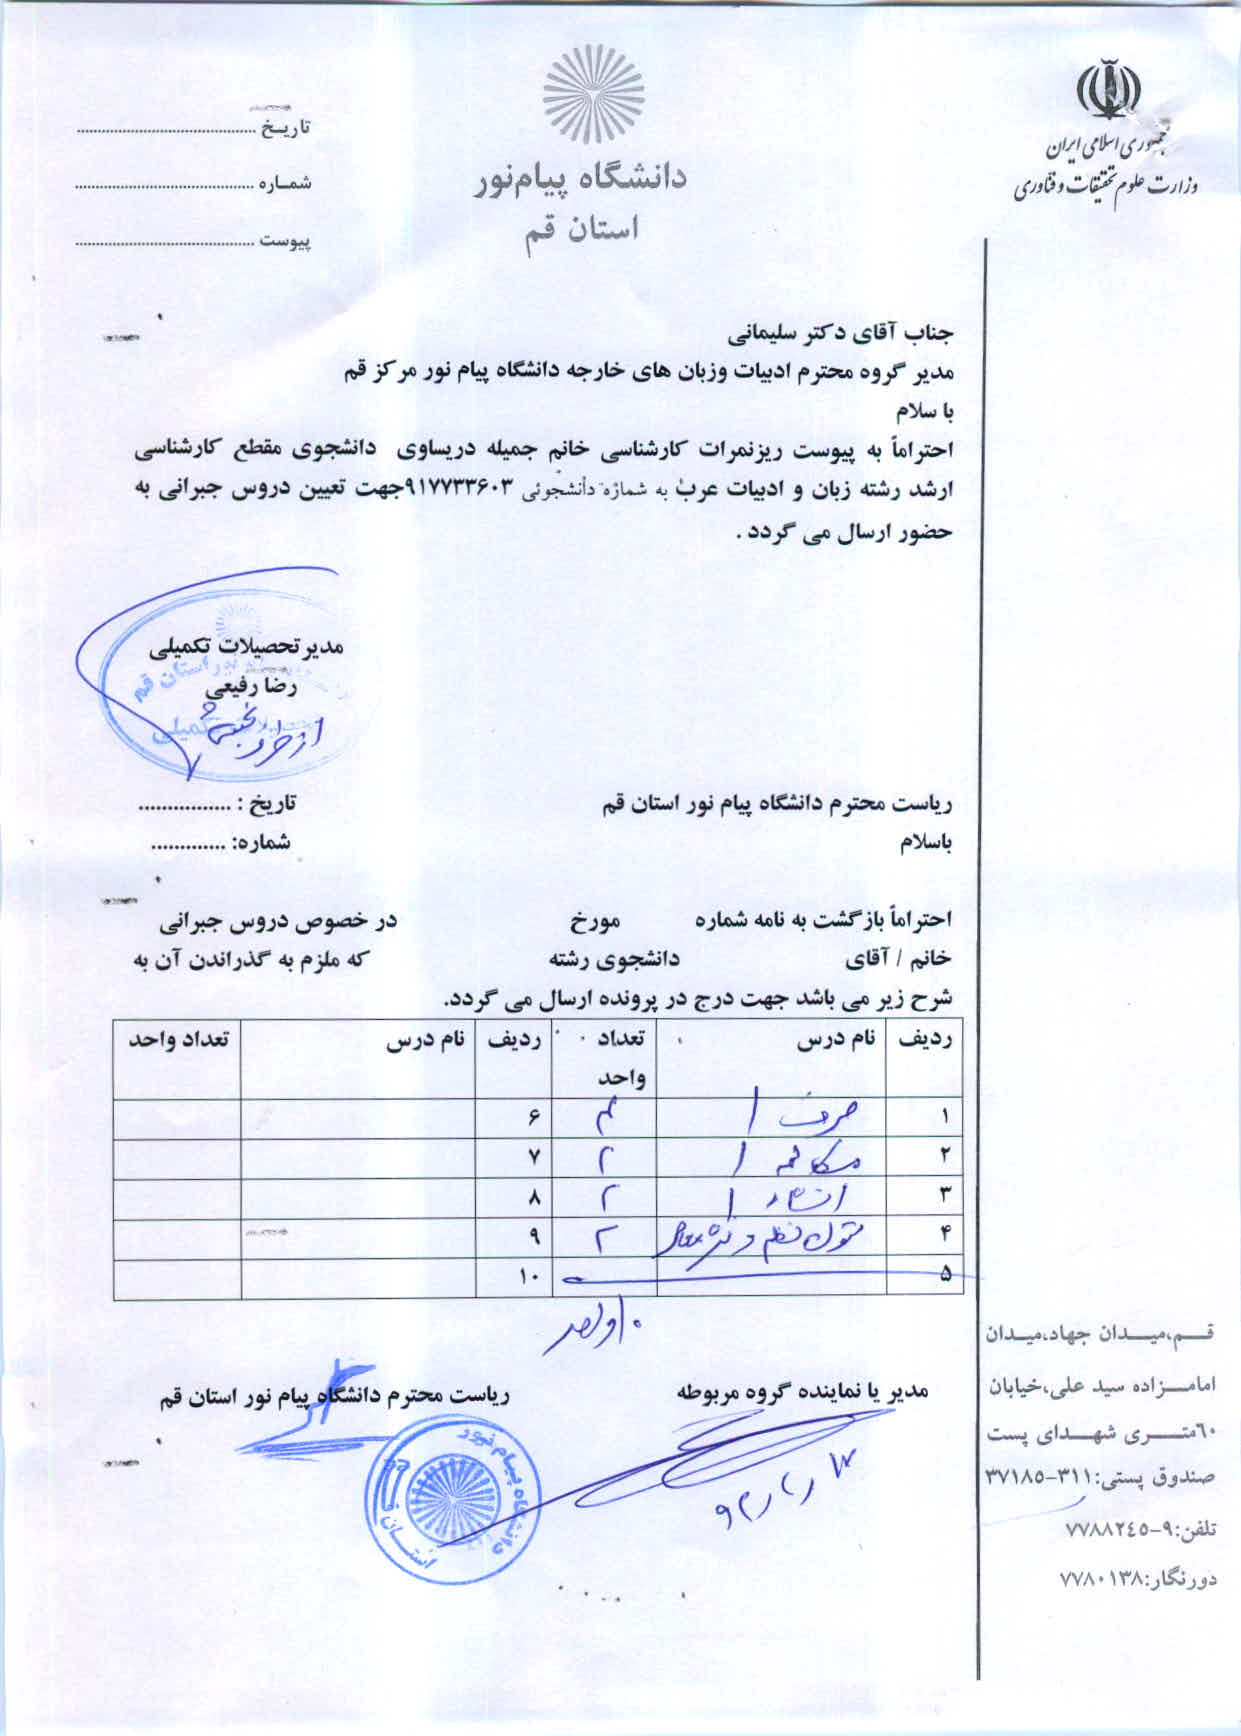 جمهوری اسلامی ایران
وزارت علوم تحقیقات و فناوری
دانشگاه پیام‌نور
استان قم
تاریخ ......................................
شماره ......................................
پیوست ......................................
جناب آقای دکتر سلیمانی
مدیر گروه محترم ادبیات وزبان های خارجه دانشگاه پیام نور مرکز قم
با سلام
احتراماً به پیوست ریزنمرات کارشناسی خانم جمیله دریساوی دانشجوی مقطع کارشناسی
ارشد رشته زبان و ادبیات عرب به شماره دانشجوئی ۹۱۷۷۳۳۶۰۳جهت تعیین دروس جبرانی به
حضور ارسال می گردد .
مدیرتحصیلات تکمیلی
رضا رفیعی
ریاست محترم دانشگاه پیام نور استان قم تاریخ : ................
باسلام شماره: .............
احتراماً بازگشت به نامه شماره مورخ در خصوص دروس جبرانی
خانم / آقای دانشجوی رشته که ملزم به گذراندن آن به
شرح زیر می باشد جهت درج در پرونده ارسال می گردد.
ردیف نام درس تعداد واحد ردیف نام درس تعداد واحد
۱ صرف ۱ ۴ ۶
۲ مکالمه ۱ ۲ ۷
۳ انشاء ۱ ۲ ۸
۴ متون نظم و نثر معاصر ۲ ۹
۵ ۱۰
۱۰ واحد
مدیر یا نماینده گروه مربوطه ریاست محترم دانشگاه پیام نور استان قم
دانشگاه پیام نور
استان قم
قم،میدان جهاد،میدان
امامزاده سید علی،خیابان
۶۰متری شهدای پست
صندوق پستی:۳۱۱-۳۷۱۸۵
تلفن:۹-۷۷۸۸۲٤٥
دورنگار:۷۷۸۰۱۳۸